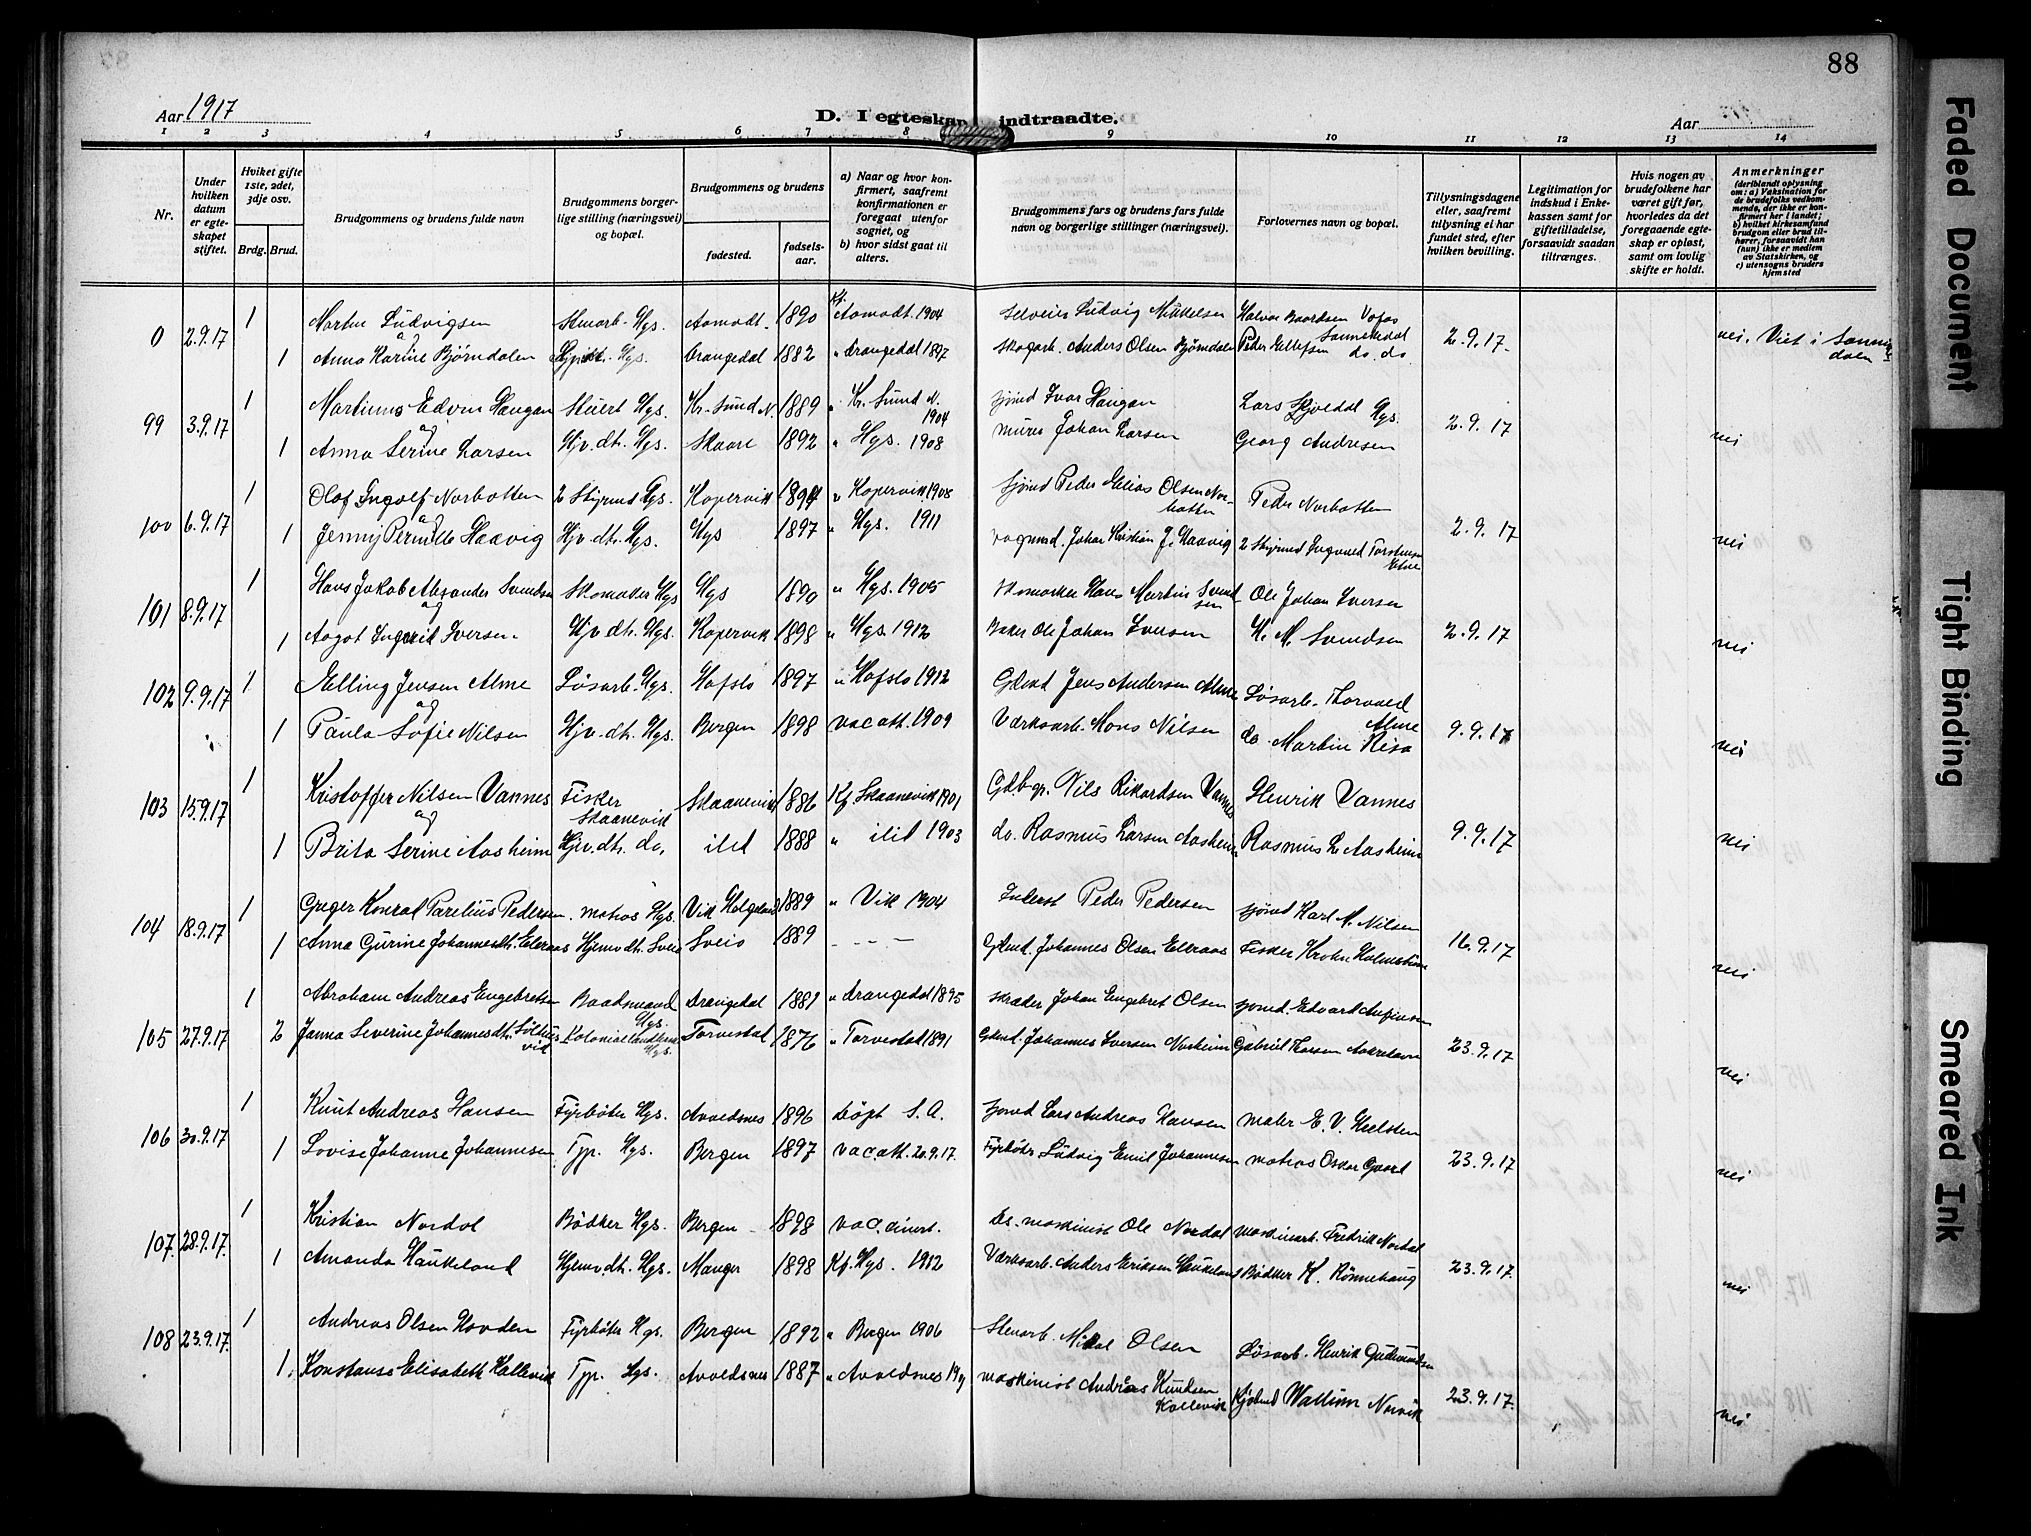 88
Aar 1917
D. I egteskap indtraadte.
Aar
1 2 3 4 5 6 7 8 9 10 11 12 13 14
Nr.
Under hvilken datum er egteskapet stiftet.
Hvilket gifte 1ste, 2det, 3dje osv.
Brdg. Brud.
Brudgommens og brudens fulde navn
Brudgommens borgerlige stilling (næringsvei) og bopæl.
Brudgommens og brudens
fødested. fødselsaar.
a) Naar og hvor konfirmert, saafremt konfirmationen er foregaat utenfor sognet, og
b) hvor sidst gaat til alters.
Brudgommens fars og brudens fars fulde navn og borgerlige stillinger (næringsvei).
Forlovernes navn og bopæl.
Tillysningsdagene eller, saafremt tillysning ei har fundet sted, efter hvilken bevilling.
Legitimation for indskud i Enkekassen samt for giftetilladelse, forsaavidt saadan tiltrænges.
Hvis nogen av brudefolkene har været gift før, hvorledes da det foregaaende egteskap er opløst, samt om lovlig skifte er holdt.
Anmerkninger
(deriblandt oplysning om: a) Vaksination for de brudefolks vedkommende, der ikke er konfirmert her i landet; b) hvilket kirkesamfund brudgom eller brud tilhører, forsaavidt han (hun) ikke er medlem av Statskirken, og c) utensogns bruders hjemsted
0 2.9.17 1 Martin Ludvigsen Stenarb. Hgs. Aamodt 1890 Kf. Aamodt 1904 Ludvig Mikkelsen Halvor Baardsen Vafos Sannikedal
og
1 Anna Karine Bjørndalen Hgs. Drangedal 1882 " Drangedal 1897 Skogarb. Anders Olsen Bjørndalen Peder Ellefsen do. do 2.9.17. nei. Viet i Sannikedalen
99 3.9.17 1 Martinus Edvin Haugan Stuert Hgs. Kr. Sund N. 1889 " Kr. Sund N. 1904 sjømd Ivar Haugan Lars Skjoldal Hgs.
og
1 Anna Serine Larsen Hjv. dt. Hgs. Skaare 1892 " Hgs. 1908 murer Johan Larsen Georg Andresen 2.9.17 nei
100 6.9.17 1 Olof Ingolf Norbotten 2 Styrmd Hgs. Kopervik 1894 " Kopervik 1908 Sjømd Peder Elias Olsen Norbotten Peder Norbotten
og
1 Jenny Pernille Haavig Hjv. dt. Hgs. Hgs 1897 " Hgs. 1911 vognmd. Johan Kristian J. Haavig 2 Styrmd Ingvald Torstensen Etne 2.9.17 nei
101 8.9.17 1 Hans Jakob Alexander Svendsen Skomaker Hgs Hgs 1890 " Hgs. 1905 Skomaker Hans Martin Svendsen Ole Johan Iversen
og
1 Aagot Ingurid Iversen Hjv. dt. Hgs. Kopervik 1898 " Hgs. 1912 Baker Ole Johan Iversen H. M. Svendsen 2.9.17 nei
102 9.9.17 1 Elling Jensen Alme Løsarb. Hgs. Hafslo 1897 " Hafslo 1912 Gdmd Jens Andersen Alme Løsarb. Thorvald Alme
og
1 Paula Sofie Nilsen Hjv. dt. Hgs. Bergen 1898 vac. att. 1909 Værksarb. Mons Nilsen do. Martin Risa 9.9.17 nei
103 15.9.17 1 Kristoffer Nilsen Vannes Fisker Skaanevik Skaanevik 1886 Kf. Skaanevik 1901 Gdbgr. Nils Rikardsen Vannes Henrik Vannes
og
1 Brita Serine Aasheim Hjv. dt. do. itid 1888 " itid 1903 do. Rasmus Larsen Aasheim Rasmus L. Aasheim 9.9.17 nei
104 18.9.17 1 Greger Konrad Parelius Pedersen matros Hgs. Vik Helgeland 1889 " Vik 1904 Inderst Peder Pedersen sjømd Karl M. Nilsen
1 Anna Gurine Johannesdt. Eltraas Hjemv. dt. Sveio Sveio 1889 - - - Gdmd. Johannes Olsen Eltraas Fisker 16.9.17 nei
105 27.9.17 1 Abraham Andreas Engebretsen Baadsmand Hgs. Drangedal 1881 " Drangedal 1895 skræder Johan Engebret Olsen sjømd. Edvard
2 Janna Severine Johannesdt. Hgs. Torvestad 1876 " Torvestad 1891 Gdmd. Johannes Iversen Norheim Gabriel 23.9.17 nei
106 30.9.17 1 Knut Andreas Hansen Fyrbøter Hgs. Avaldsnes 1896 døpt S. A. sjømd Lars Andreas Hansen maler E. V. Kielsten
1 Lovise Johanne Johannesen Typ. Hgs. Bergen 1897 vac. att. 20.9.17. Fyrbøter Ludvig Emil Johannesen matros Oskar Gaard 23.9.17 nei
107. 28.9.17. 1 Kristian Nordal Bødker Hgs. Bergen 1898 vac. Ds. maskinist Ole Nordal maskinarb. Fredrik Nordal
1 Amanda Haukeland Hjemv. dt. Hgs. Manger 1898 Kf. Hgs. 1912 Værksarb. Anders Eriksen Haukeland Bødker K. Rönnehaug 23.9.17. nei
108 23.9.17. 1 Andreas Olsen Hovden Fyrbøter Hgs. Bergen 1892 " Bergen 1906 Stenarb. Mikal Olsen Løsarb. Henrik Gudmundsen
1. Konstanse Elisabeth Kallevik Typ. Hgs. Avaldsnes 1887 " Avaldsnes maskinist Andreas Knudsen Kallevik Wallum Norvik 23.9.17. nei
Faded Document
Tight Binding
Smeared Ink